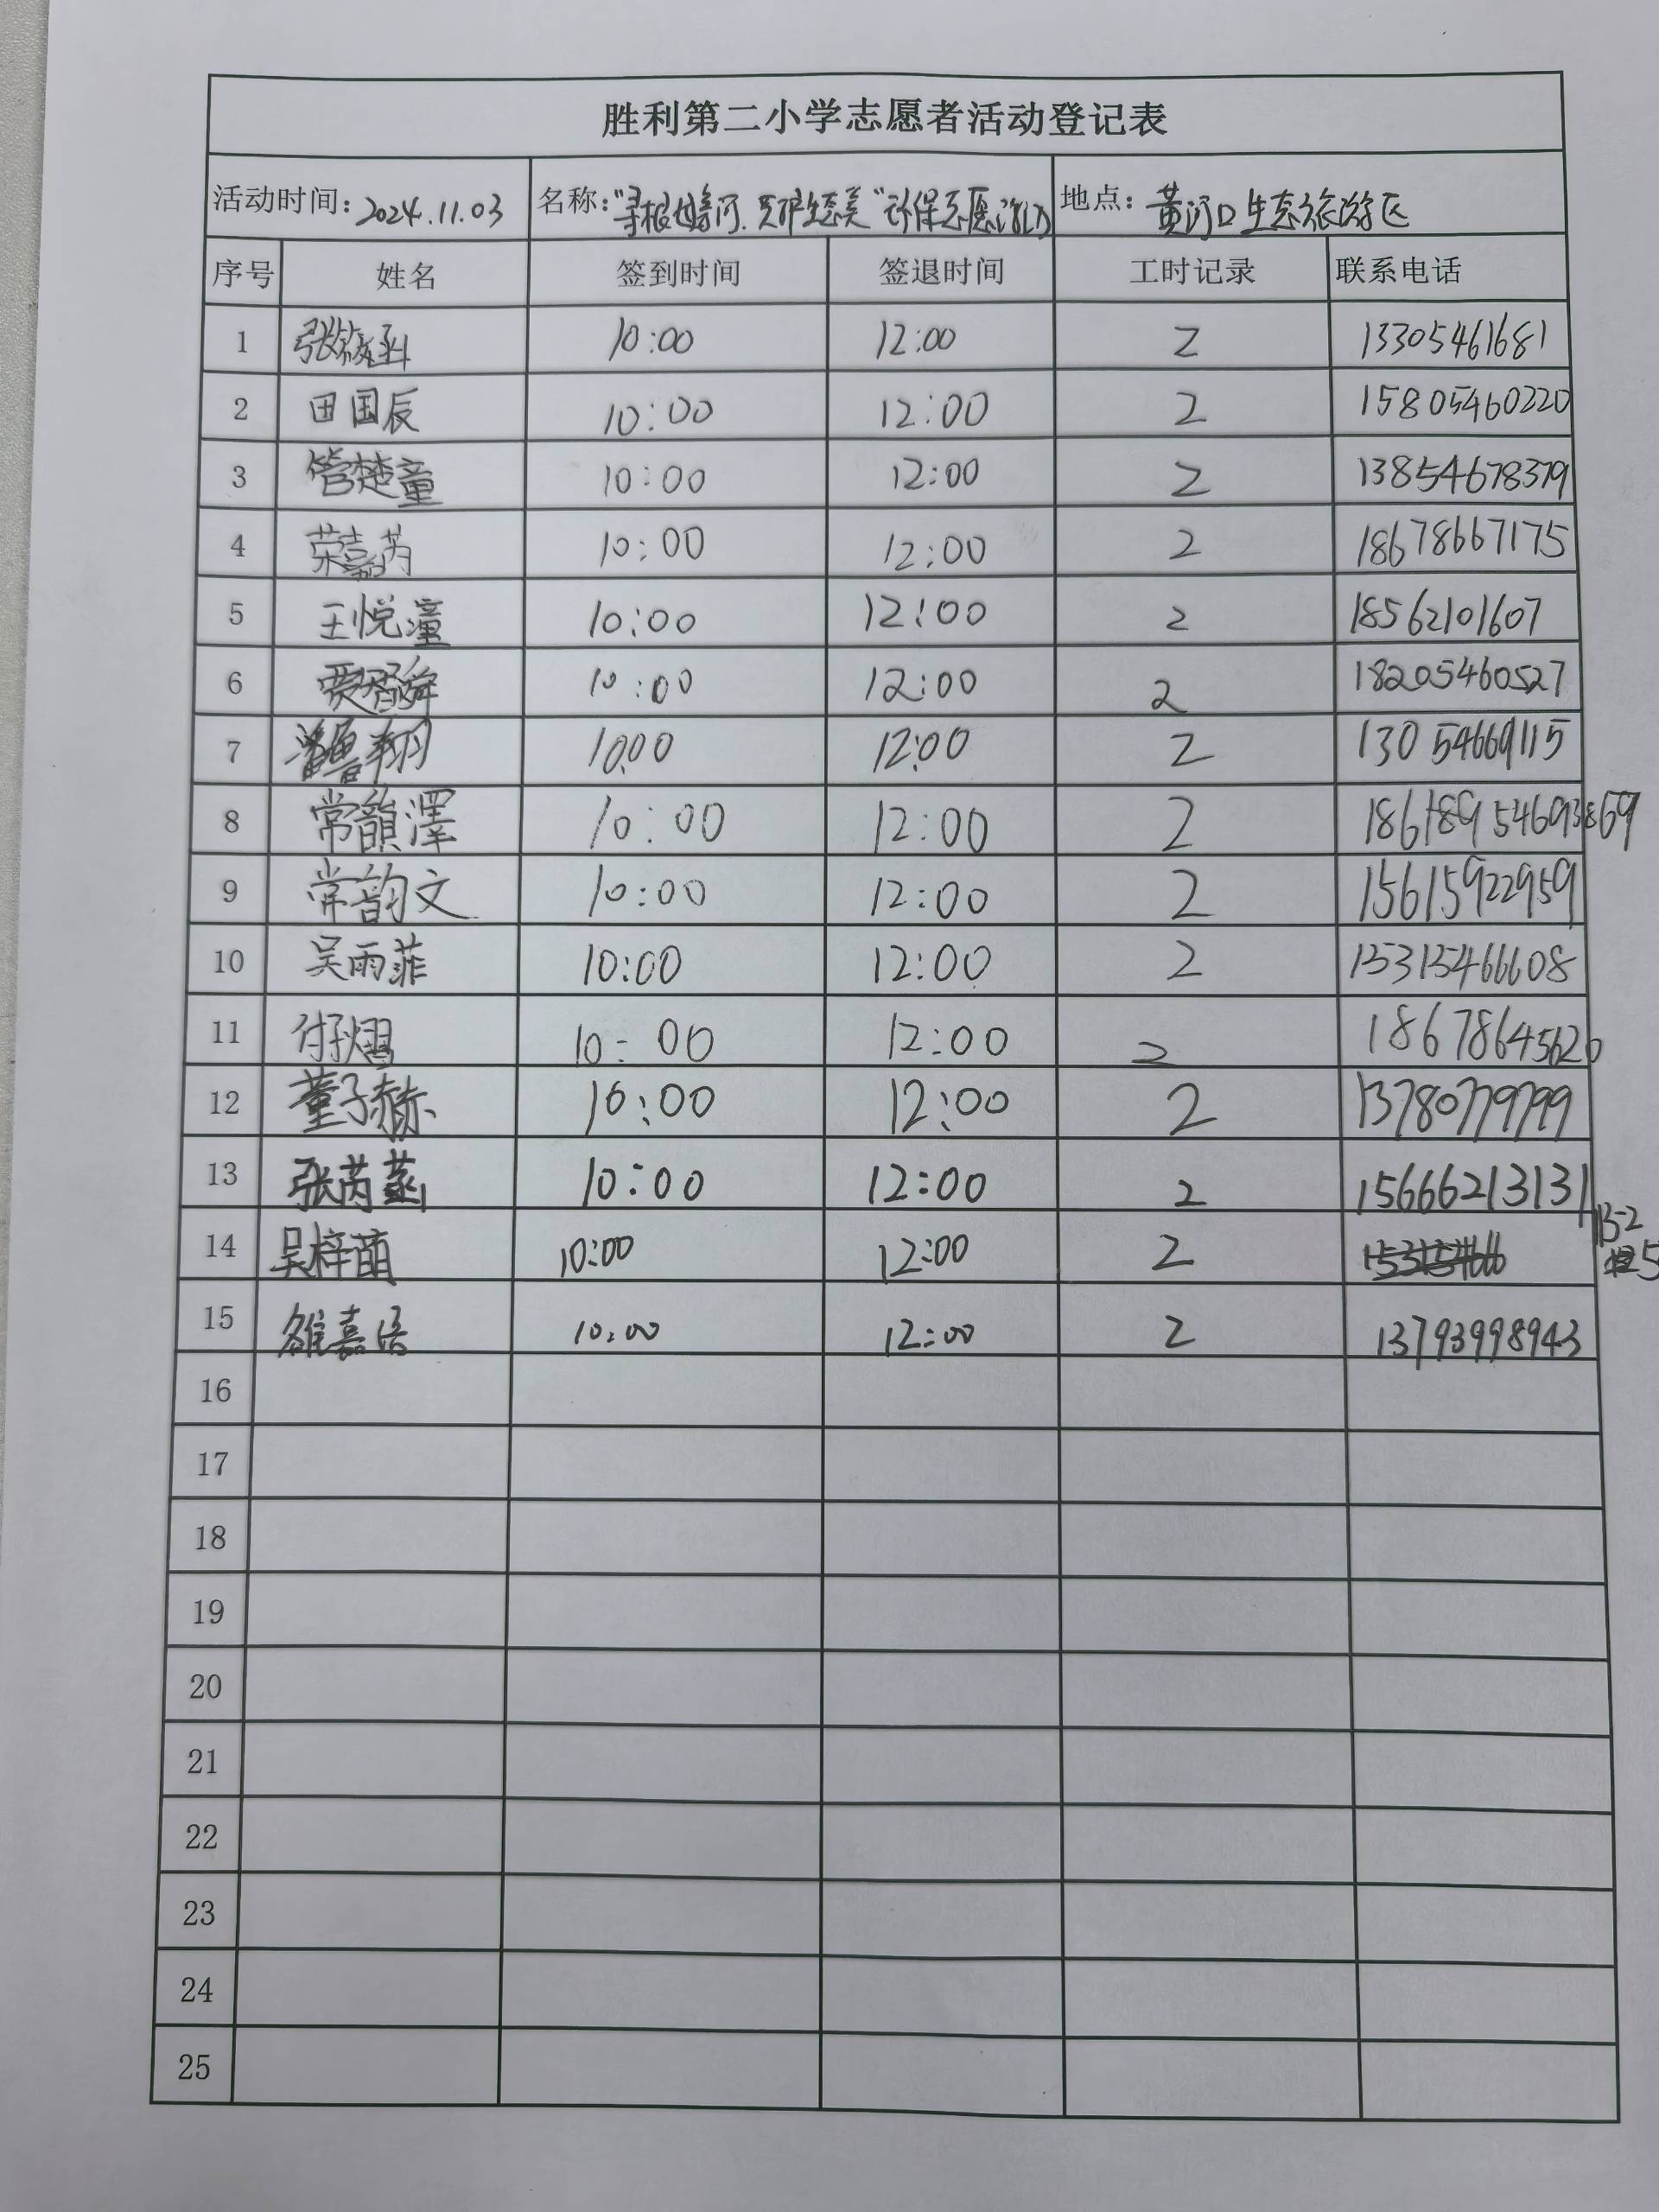 胜利第二小学志愿者活动登记表
活动时间: 2024.11.03 名称: "寻根母亲河.共护生态美"环保志愿活动 地点: 黄河口生态旅游区
序号 姓名 签到时间 签退时间 工时记录 联系电话
1 张筱函 10:00 12:00 2 13305461681
2 田国辰 10:00 12:00 2 15805460220
3 管楚童 10:00 12:00 2 13854678379
4 荣嘉芮 10:00 12:00 2 18678667175
5 王悦潼 10:00 12:00 2 18562101607
6 贾智舜 10:00 12:00 2 18205460527
7 翔 10:00 12:00 2 13054669115
8 常韻澤 10:00 12:00 2
9 常韵文 10:00 12:00 2 15615922959
10 吴雨菲 10:00 12:00 2 15315466608
11 付秋熠 10:00 12:00 2 18678645620
12 董子赫 10:00 12:00 2 13780779799
13 张芮菡 10:00 12:00 2 15666213131
14 吴梓萌 10:00 12:00 2
15 雒嘉语 10:00 12:00 2 13793998943
16
17
18
19
20
21
22
23
24
25